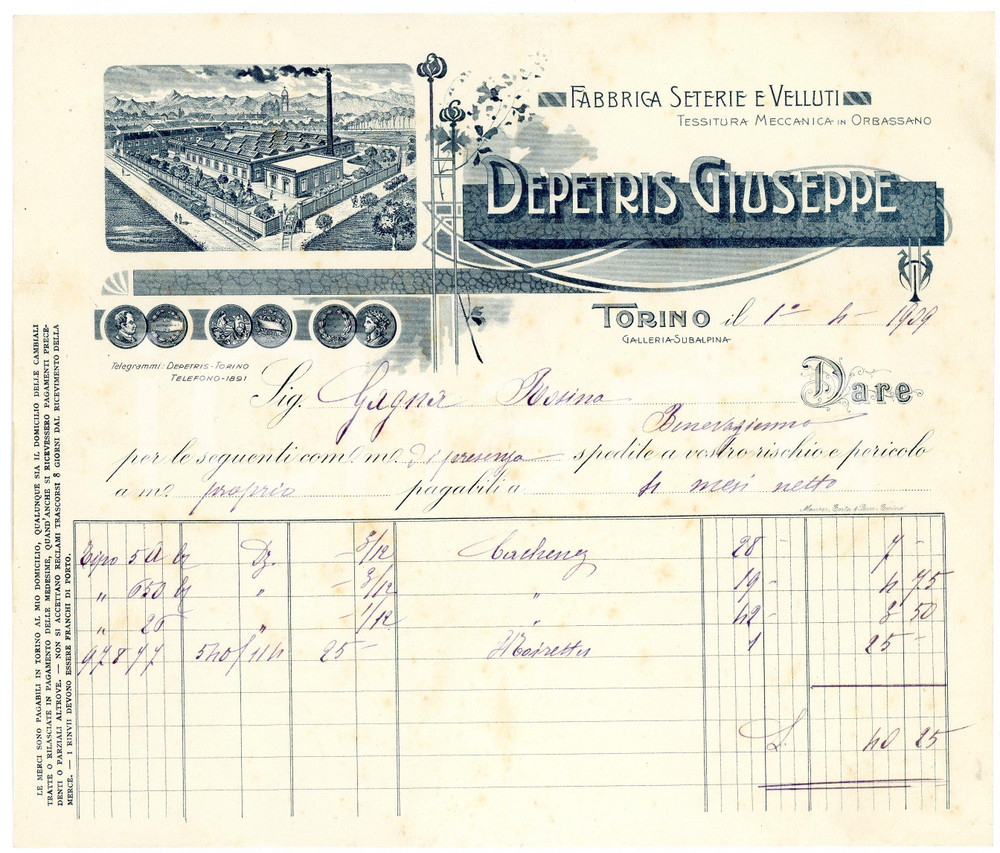 FABBRICA SETERIE E VELLUTI
TESSITURA MECCANICA IN ORBASSANO
DEPETRIS GIUSEPPE
TORINO il 1º 4 - 1909
GALLERIA-SUBALPINA
Telegrammi: DEPETRIS-TORINO
TELEFONO-1891
Dare
Sig. Gagna Rosina
Benevagienna
per le seguenti com.e me. di presenza spedite a vostro rischio e pericolo
a m. proprio pagabili a 4 mesi netto
Tipo 50 Dz. - 3/12 Cachenez 28 - 7 -
" 650 " - 3/12 " 19 - 4 75
" 26 " - 1/12 " 42 - 3 50
97877 540/ 25 - 1 25 -
L. 40 25
LE MERCI SONO PAGABILI IN TORINO AL MIO DOMICILIO, QUALUNQUE SIA IL DOMICILIO DELLE CAMBIALI
TRATTE O RILASCIATE IN PAGAMENTO DELLE MEDESIME, QUAND'ANCHE SI RICEVESSERO PAGAMENTI PRECE-
DENTI O PARZIALI ALTROVE. — NON SI ACCETTANO RECLAMI TRASCORSI 8 GIORNI DAL RICEVIMENTO DELLA
MERCE. — I RINVII DEVONO ESSERE FRANCHI DI PORTO.